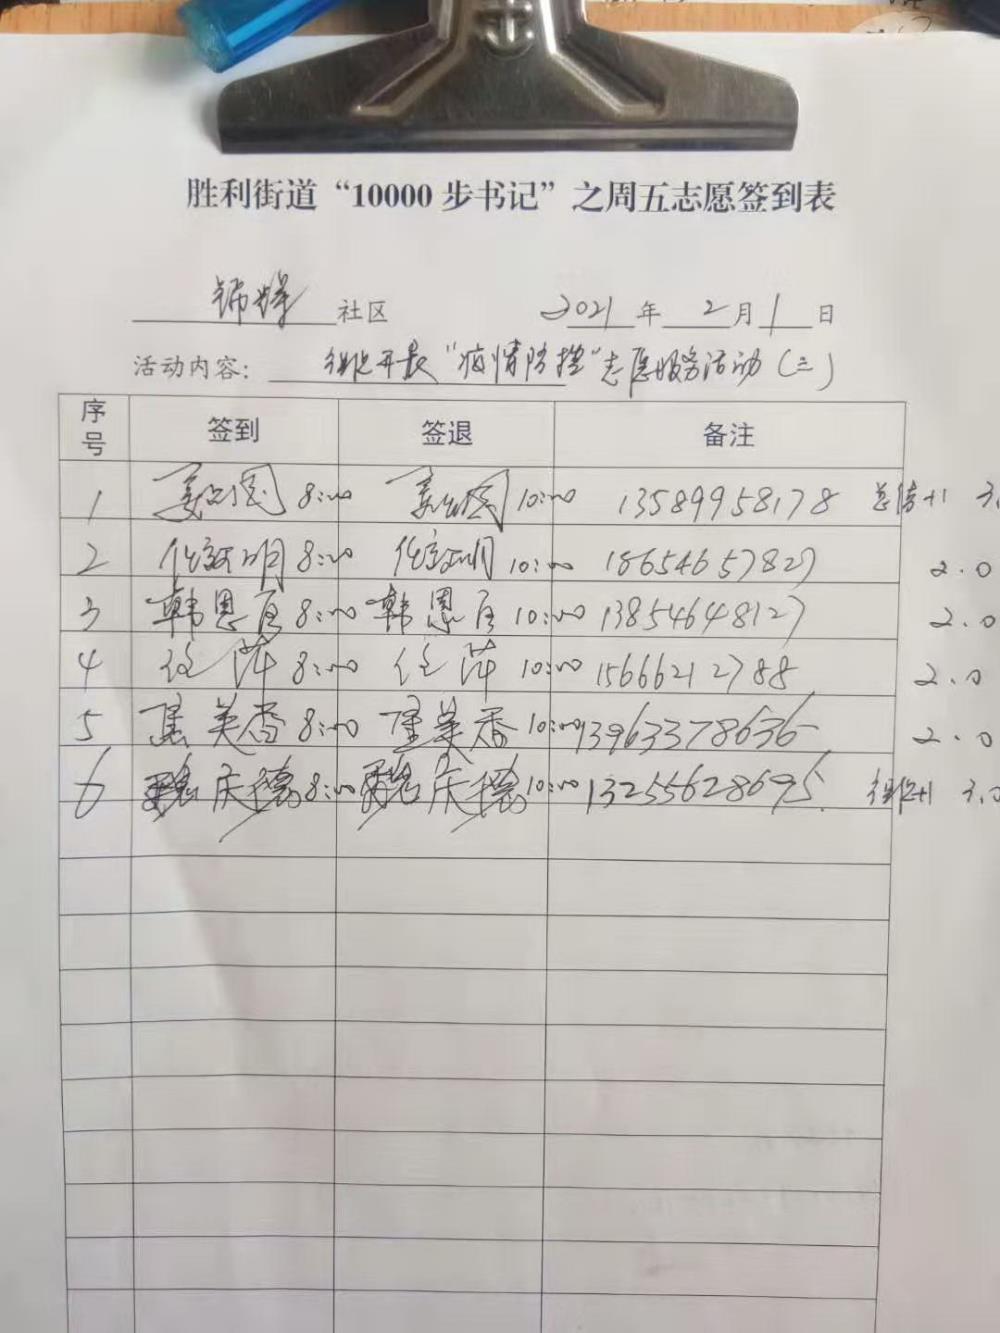 胜利街道“10000步书记”之周五志愿签到表
锦华社区 2021年2月1日
活动内容： 组织开展“疫情防控”志愿服务活动（三）
序号 签到 签退 备注
1 8:00 10:00 13589958178 总结+1 3.
2 8:00 10:00 18654657827 2.0
3 韩恩后 8:00 韩恩后 10:00 13854648127 2.0
4 任萍 8:00 任萍 10:00 15666212788 2.0
5 美香 8:00 美香 10:00 13963378636 2.0
6 魏庆德 8:00 魏庆德 10:00 13255628695 组织+1 3.0